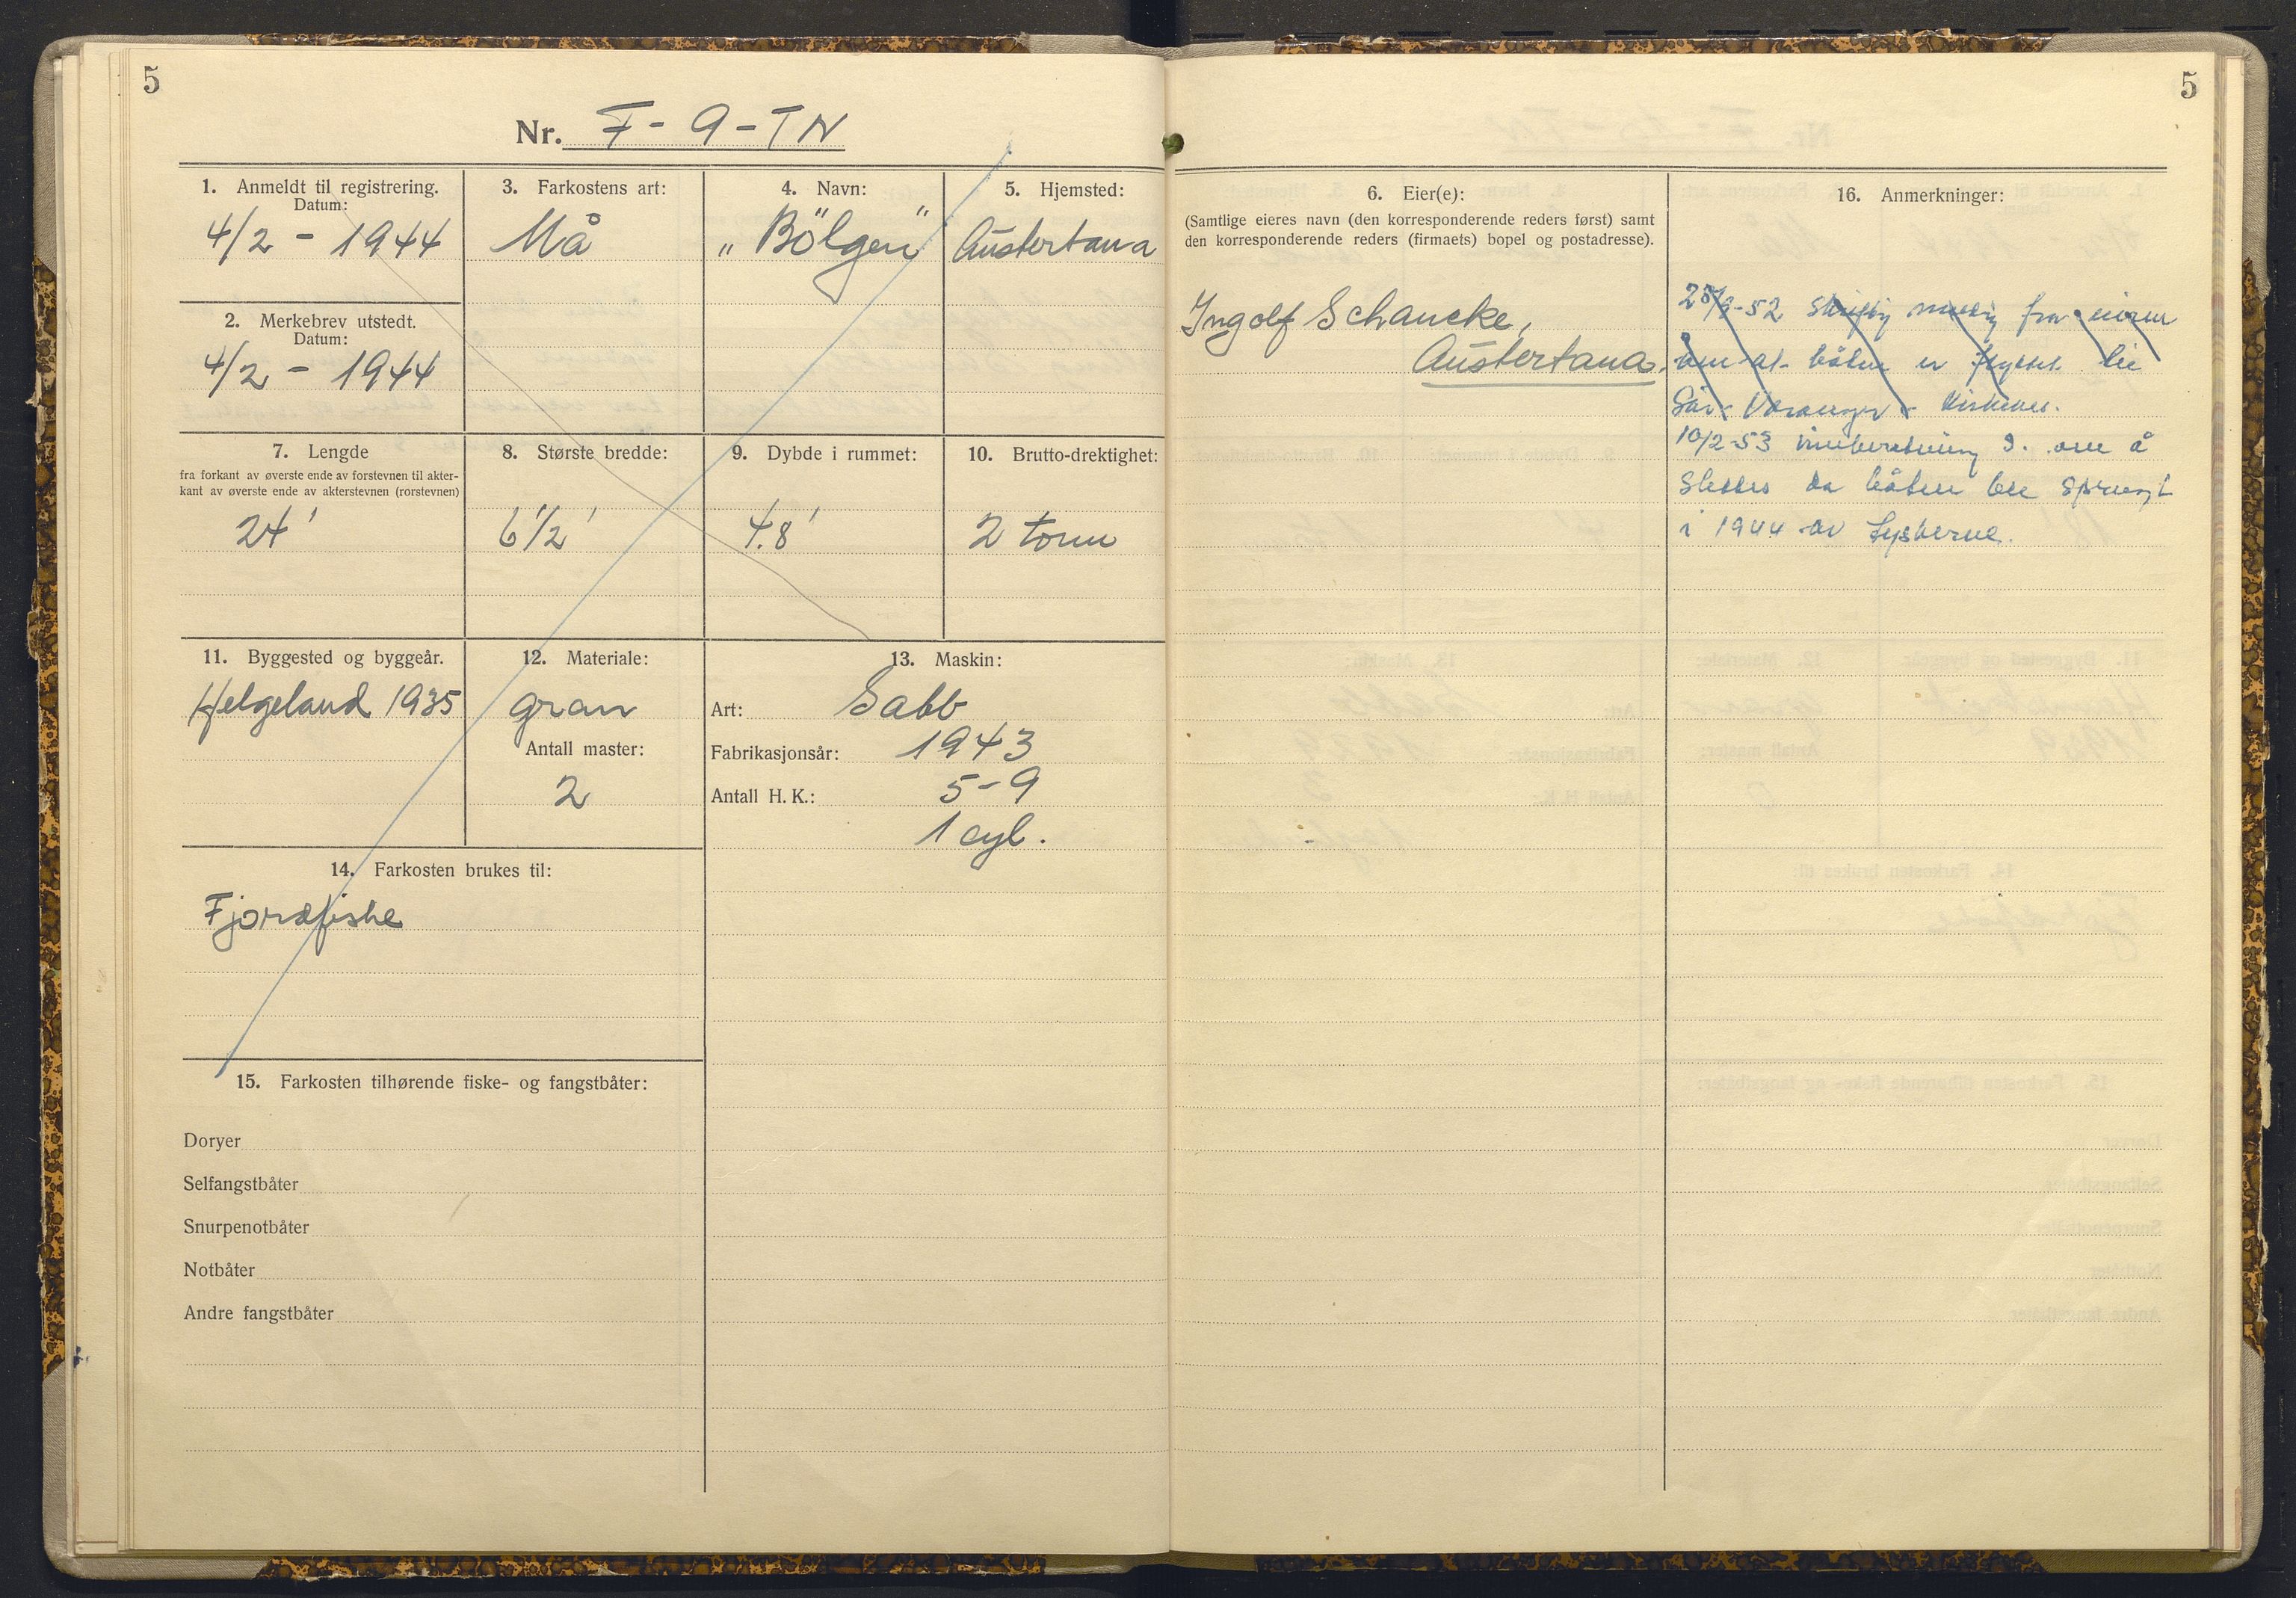 5
Nr. F-9-TN
1. Anmeldt til registrering.
Datum:
4/2 - 1944
2. Merkebrev utstedt.
Datum:
4/2 - 1944
3. Farkostens art:
Må
4. Navn:
„Bölgen"
5. Hjemsted:
Austertana
7. Lengde
fra forkant av øverste ende av forstevnen til akter-
kant av øverste ende av akterstevnen (rorstevnen)
24'
8. Største bredde:
6 1/2'
9. Dybde i rummet:
4.8'
10. Brutto-drektighet:
2 tonn
11. Byggested og byggeår.
Helgeland 1935
12. Materiale:
gran
Antall master:
2
13. Maskin:
Art: Sabb
Fabrikasjonsår: 1943
Antall H. K.: 5-9
1 cyl.
14. Farkosten brukes til:
Fjordfiske
15. Farkosten tilhørende fiske- og fangstbåter:
Doryer
Selfangstbåter
Snurpenotbåter
Notbåter
Andre fangstbåter
5
6. Eier(e):
(Samtlige eieres navn (den korresponderende reders først) samt
den korresponderende reders (firmaets) bopel og postadresse).
Ingolf Schancke,
Austertana.
16. Anmerkninger:
-52 skriftlig melding fra eieren
om at båten er flyttet til
Sør-Varanger Kirkenes.
10/2-53 om å
slettes da båten ble sprengt
i 1944 av tyskerne.